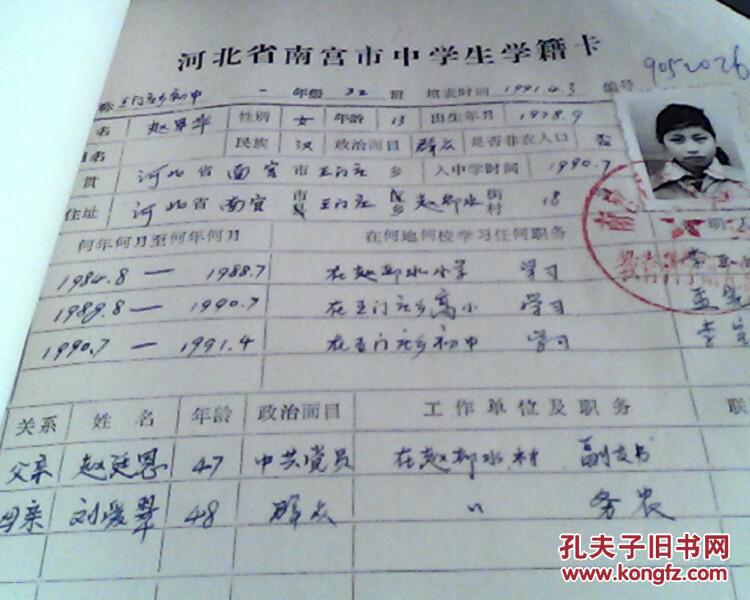 河北省南宫市中学生学籍卡
9052026
称 王门庄乡初中 一 年级 32 班 填表时间 1991.4.3 编号
名 赵 华 性别 女 年龄 13 出生年月 1978.9
名 民族 汉 政治面目 群众 是否非农人口 否
贯 河北省南宫市王门庄乡 入中学时间 1990.7
住址 河北省南宫市县王门庄乡赵邱水街村 18
何年何月至何年何月 在何地何校学习任何职务 证明
1984.8 — 1988.7 在赵邱水小学 学习
1989.8 — 1990.7 在王门庄乡高小 学习
1990.7 — 1991.4 在王门庄乡初中 学习
关系 姓名 年龄 政治面目 工作单位及职务 联
父亲 赵廷恩 47 中共党员 在赵邱水村 副支书
母亲 刘爱翠 48 群众 〃 务农
孔夫子旧书网
www.kongfz.com